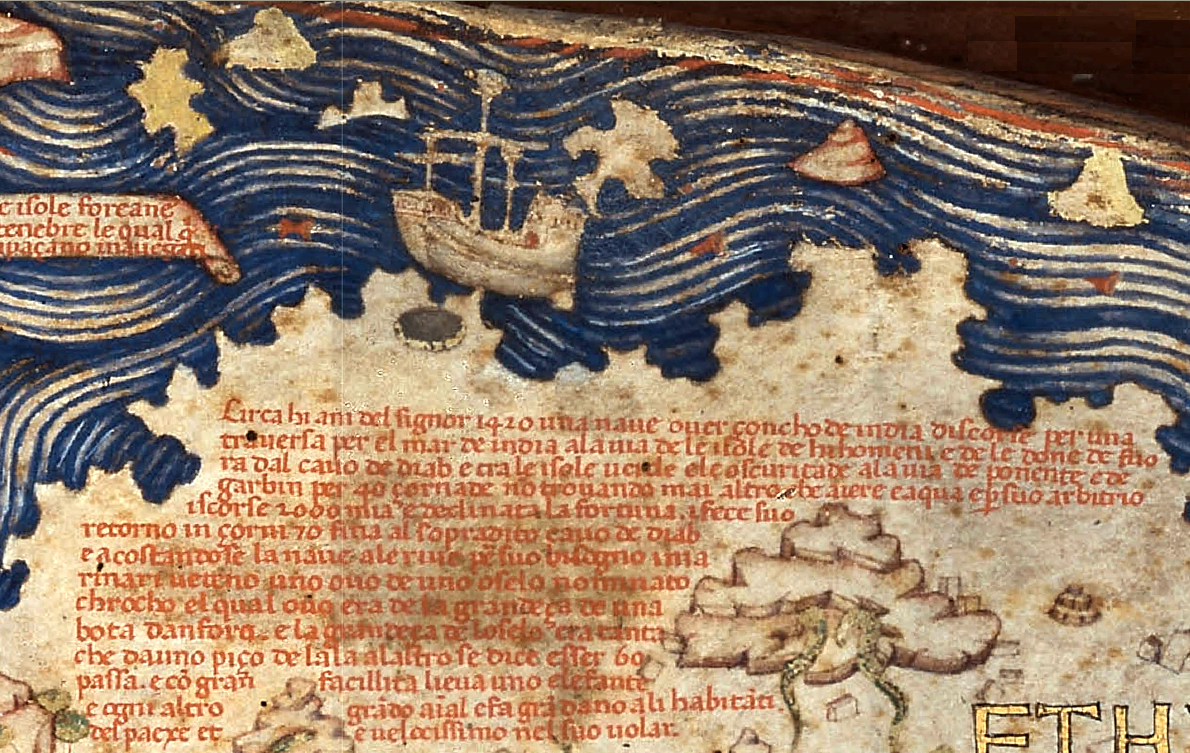 c isole foreane
tenebre le qual
navegar
Circa hi ani del signor 1420 una nave over çoncho de india discorse per una
traversa per el mar de india a la via de le isole de hi homeni e de le done de fuo
ra dal cavo de diab e tra le isole verde e le oscuritade a la via de ponente e de
garbin per 40 çornade no trovando mai altro che aiere e aqua e p suo arbitrio
iscorse 2000 mia e declinata la fortuna. i fece suo
retorno in çorni 70 fina al sopradito cavo de diab
e acostandose la nave a le rive p suo bisogno i ma
rinari vedeno uno ovo de uno oselo nominato
chrocho el qual ovo era de la grandeça de una
bota danfora. e la grandeça de loselo era tanta
che dauno piço de lala a laltro se dice esser 60
passa. e cō gran facillita lieva uno elefante
e ogni altro grādo aīal e fa gra dano a li habitāti
del paexe et e velocissimo nel suo volar.
ETH